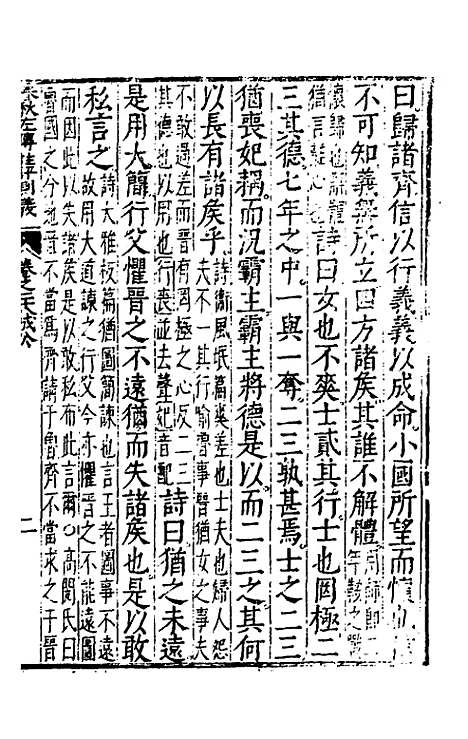 曰歸諸齊信以行義義以成命小國所望而懷也信
不可知義無所立四方諸侯其誰不解體用師即二
年鞌之戰
懷歸也解體
猶言離心也詩曰女也不爽士貳其行士也罔極二
三其德七年之中一與一奪二三孰甚焉士之二三
猶喪妃耦而況霸主霸主將德是以而二三之其何
以長有諸侯乎詩衛風氓篇爽差也士夫也婦人怨
夫不一其行喻魯事晉猶女之事夫
不敢過差而晉有罔極之心反二三
其德也以用也行喪並去聲妃音配詩曰猶之未遠
是用大簡行父懼晉之不遠猶而失諸侯也是以敢
私言之詩大雅板篇猶圖簡諫也言王者圖事不遠
故用大道諫之行父今亦懼晉之不能遠圖
而因此以失諸侯是以敢私布此言爾○高閌氏曰
魯國之分地晉不當爲齊請于魯齊不當求之于晉
春秋左傳註評測義 卷之 成公 二